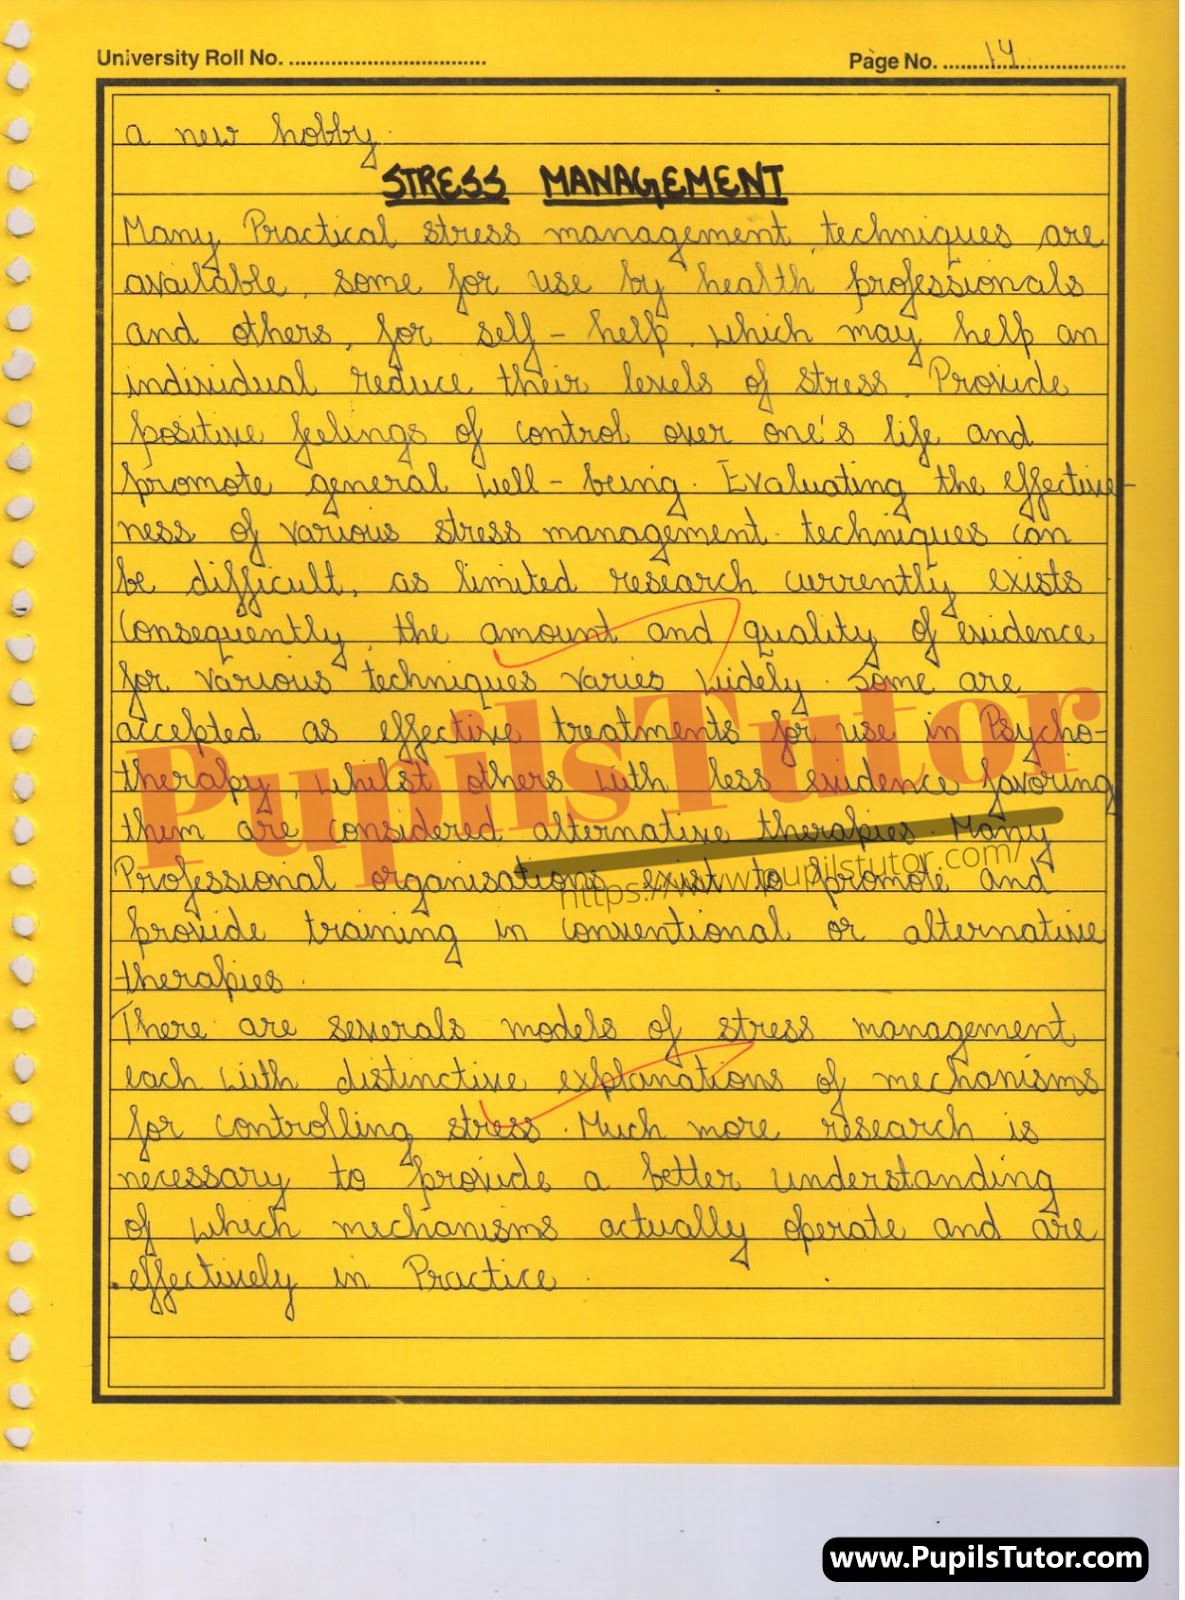 University Roll No. ..................................
Page No. .......14...................
a new hobby.
STRESS MANAGEMENT
Many Practical stress management techniques are
available, some for use by health professionals
and others, for self-help, which may help an
individual reduce their levels of stress. Provide
positive feelings of control over one's life and
promote general well-being. Evaluating the effective-
ness of various stress management techniques can
be difficult, as limited research currently exists.
Consequently, the amount and quality of evidence
for various techniques varies widely. Some are
accepted as effective treatments for use in Psycho-
therapy, whilst others with less evidence favoring
them are considered alternative therapies. Many
Professional organisations exist to promote and
provide training in conventional or alternative
therapies.
There are severals models of stress management
each with distinctive explanations of mechanisms
for controlling stress. Much more research is
necessary to provide a better understanding
of which mechanisms actually operate and are
effectively in Practice.
PupilsTutor
https://www.pupilstutor.com/
www.PupilsTutor.com